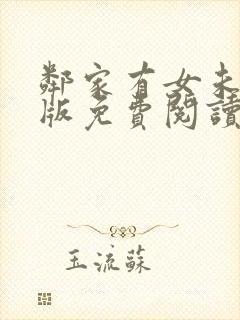 鄰家有女未
版免費閱讀
玉流蘇